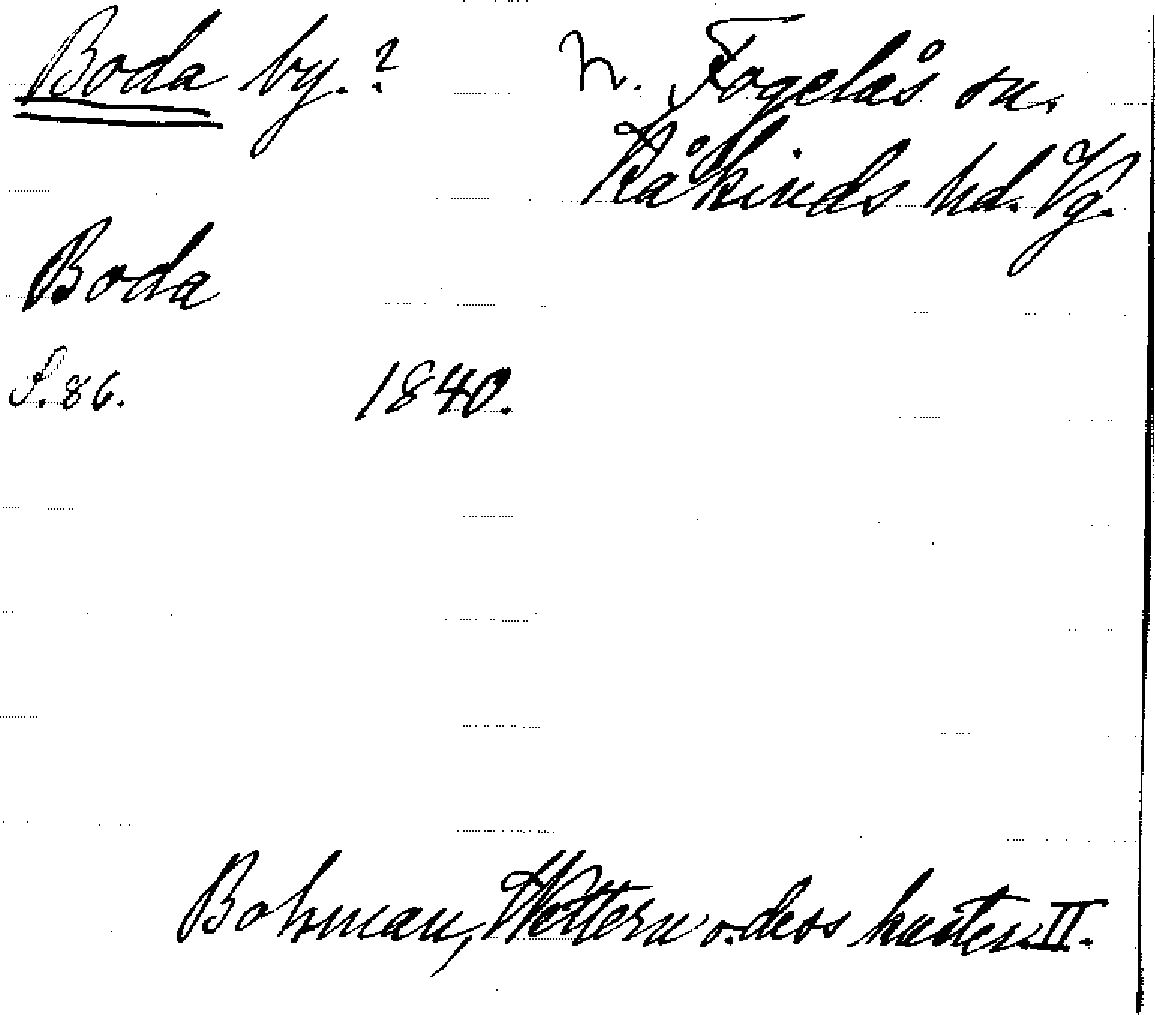 Boda by.? N. Fogelås sn.
Kåkinds hd. Vg.
Boda
S. 86. 1840.
Bohman, Wettern o. dess kuster. II.